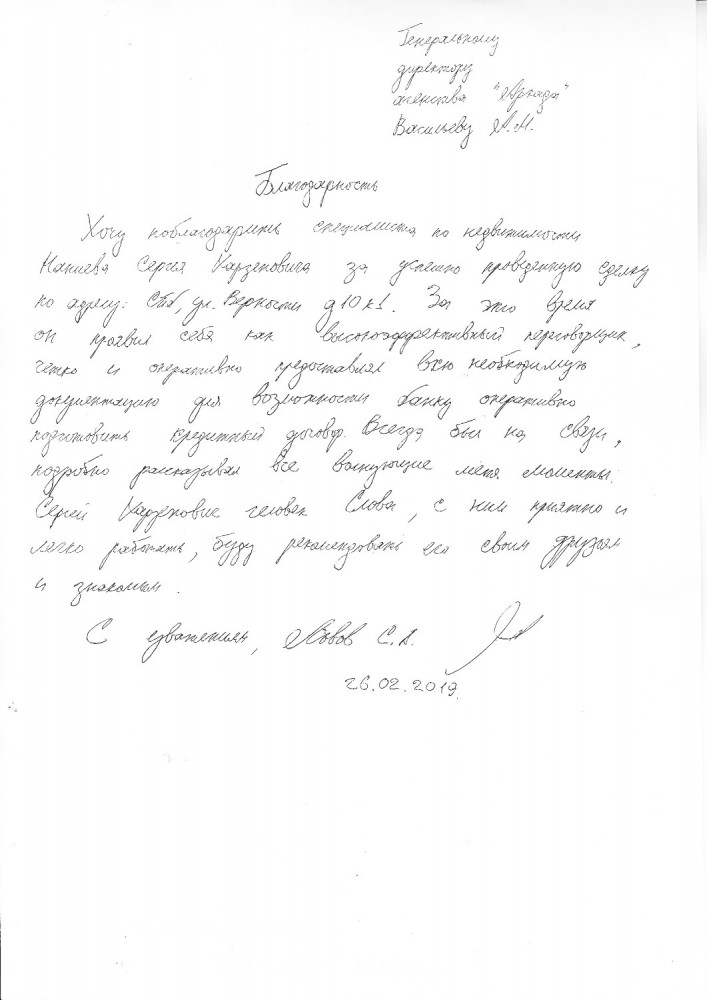 Генеральному
директору
агенства "Аркада"
Васильеву А.Н.
Благодарность
Хочу поблагодарить специалиста по недвижимости
Сергея за успешно проведенную сделку
по адресу: СПб, ул. Верности д10 к1. За это время
он проявил себя как высокоэффективный переговорщик,
четко и оперативно предоставлял всю необходимую
документацию для возможности банку оперативно
подготовить кредитный договор. Всегда был на связи,
подробно рассказывал все волнующие меня моменты.
Сергей человек Слова, с ним приятно и
легко работать, буду рекомендовать его своим друзьям
и знакомым.
С уважением, С.А.
26.02.2019.